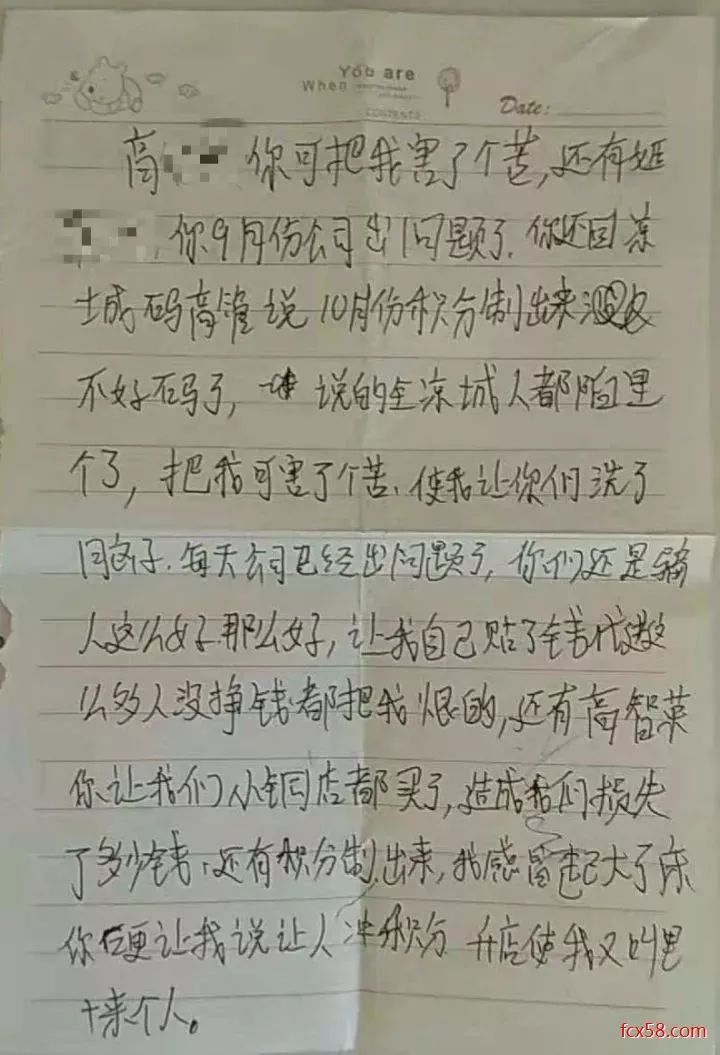 You are
When
CONTENTS
Date:
高 你可把我害了个苦,还有姬
你9月份公司出问题了.你还回凉
城码高雄说10月份积分制出来没
不好码了, 说的全凉城人都陷里
个了,把我可害了个苦、使我让你们洗了
每天公司已经出问题了,你们还是骗
人这么好那么好,让我自己贴了钱
么多人没挣钱都把我恨的,还有高智英
你让我们小铜店都买了,造成我们损失
了多少钱、还有积分制出来,我感冒起大了床
你硬让我说让人冲积分 升店使我又叫里
十来个人。
fcx58.com